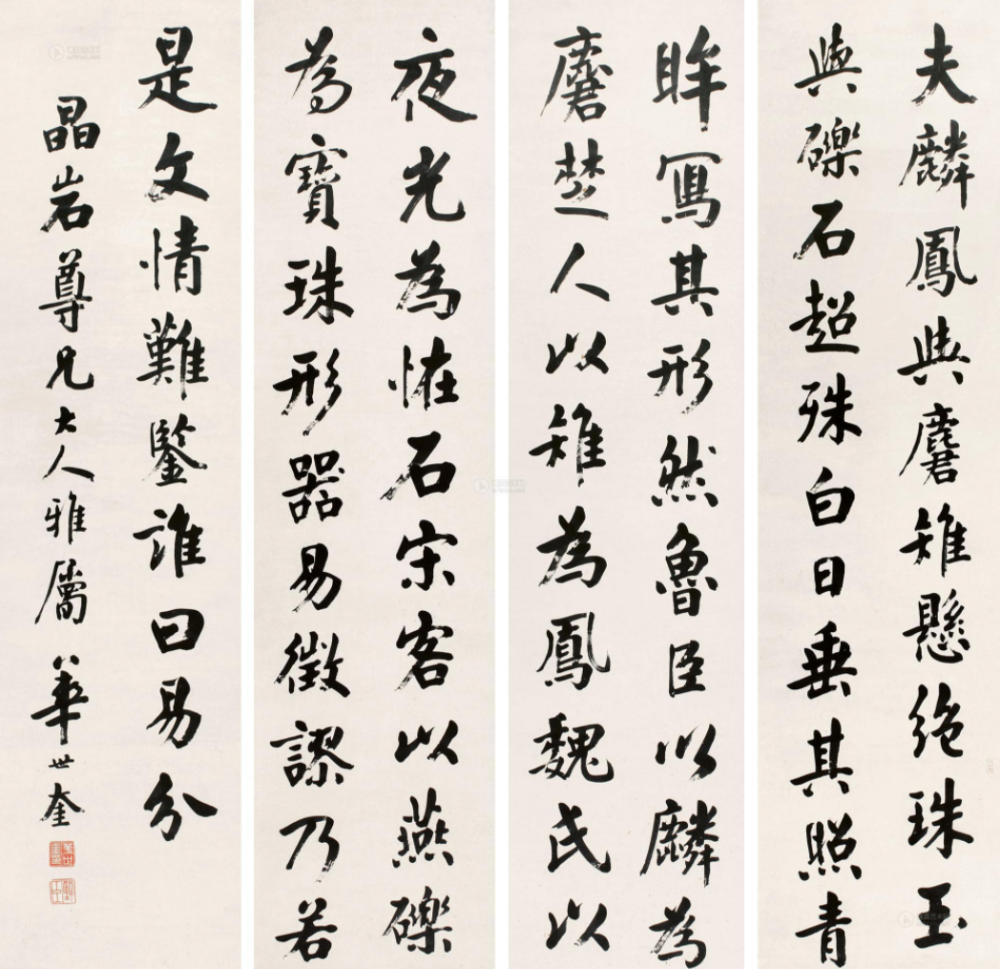 夫麟鳳與麏雉懸絕珠玉
與礫石超殊白日垂其照青
眸寫其形然魯臣以麟為
麏楚人以雉為鳳魏氏以
夜光為怪石宋客以燕礫
為寶珠形器易徵謬乃若
是文情難鑒誰曰易分
晶岩尊兄大人雅屬 華世奎